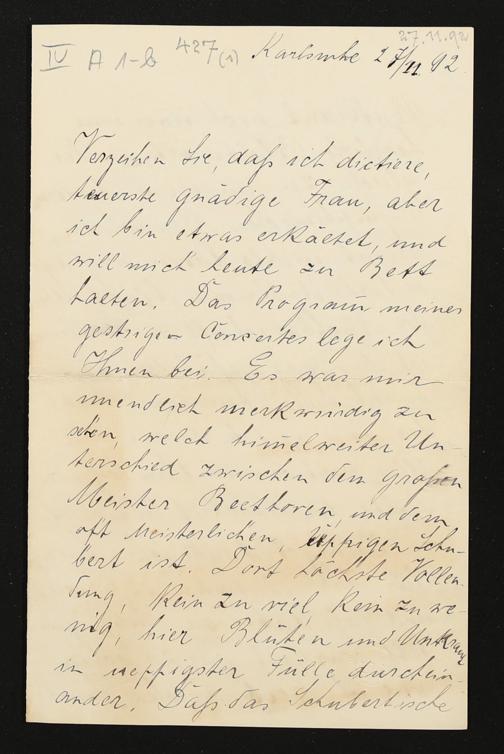 27.11.92
IV A 1-b 427(1) Karlsruhe 27/11 92
Verzeihen Sie, daß ich dictiere,
teuerste gnädige Frau, aber
ich bin etwas erkäeltet, und
will mich heute zu Bett
haeten. Das Program̄ meines
gestrigen Concertes lege ich
Ihnen bei. Es war mir
unendlich merkwürdig zu
sehen, welch him̄elweiter Un-
terschied zwischen dem großen
Meister Beethoven, und dem
oft meisterlichen, üppigen Schu-
bert ist. Dort höchste Vollen-
dung, kein zu viel, kein zu we-
nig, hier Blüten und Unkraut
in ueppigster Fülle durchein-
ander. Daß das Schubertische